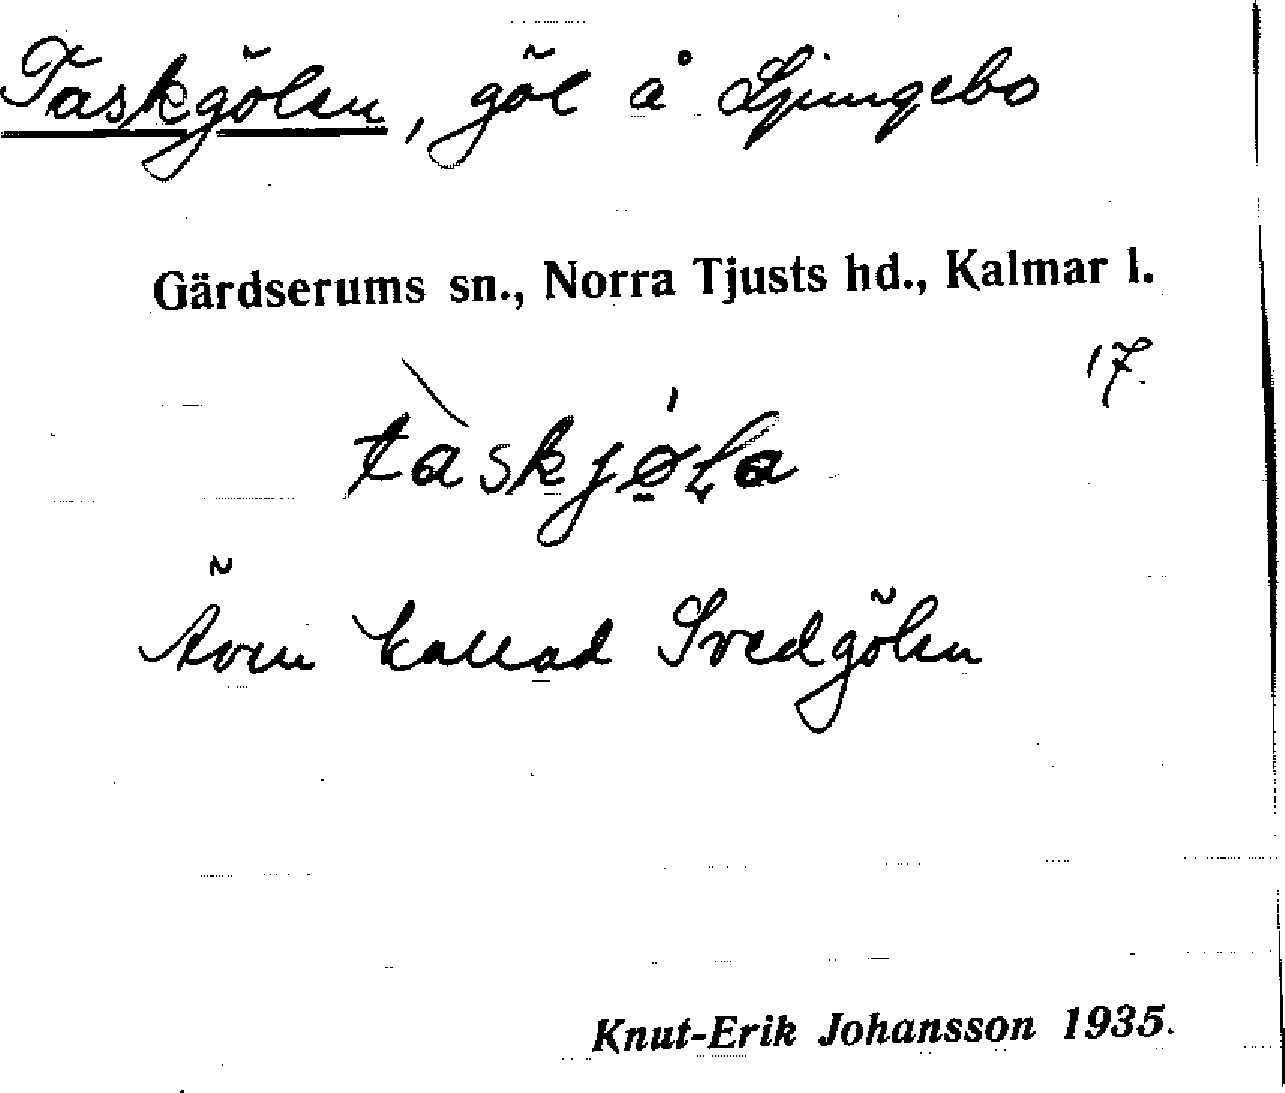 Taskgölen, göl å Ljungebo
Gärdserums sn., Norra Tjusts hd., Kalmar l.
17.
tàskjǿ̠ɫa
Även kallad Svedgölen
Knut-Erik Johansson 1935.